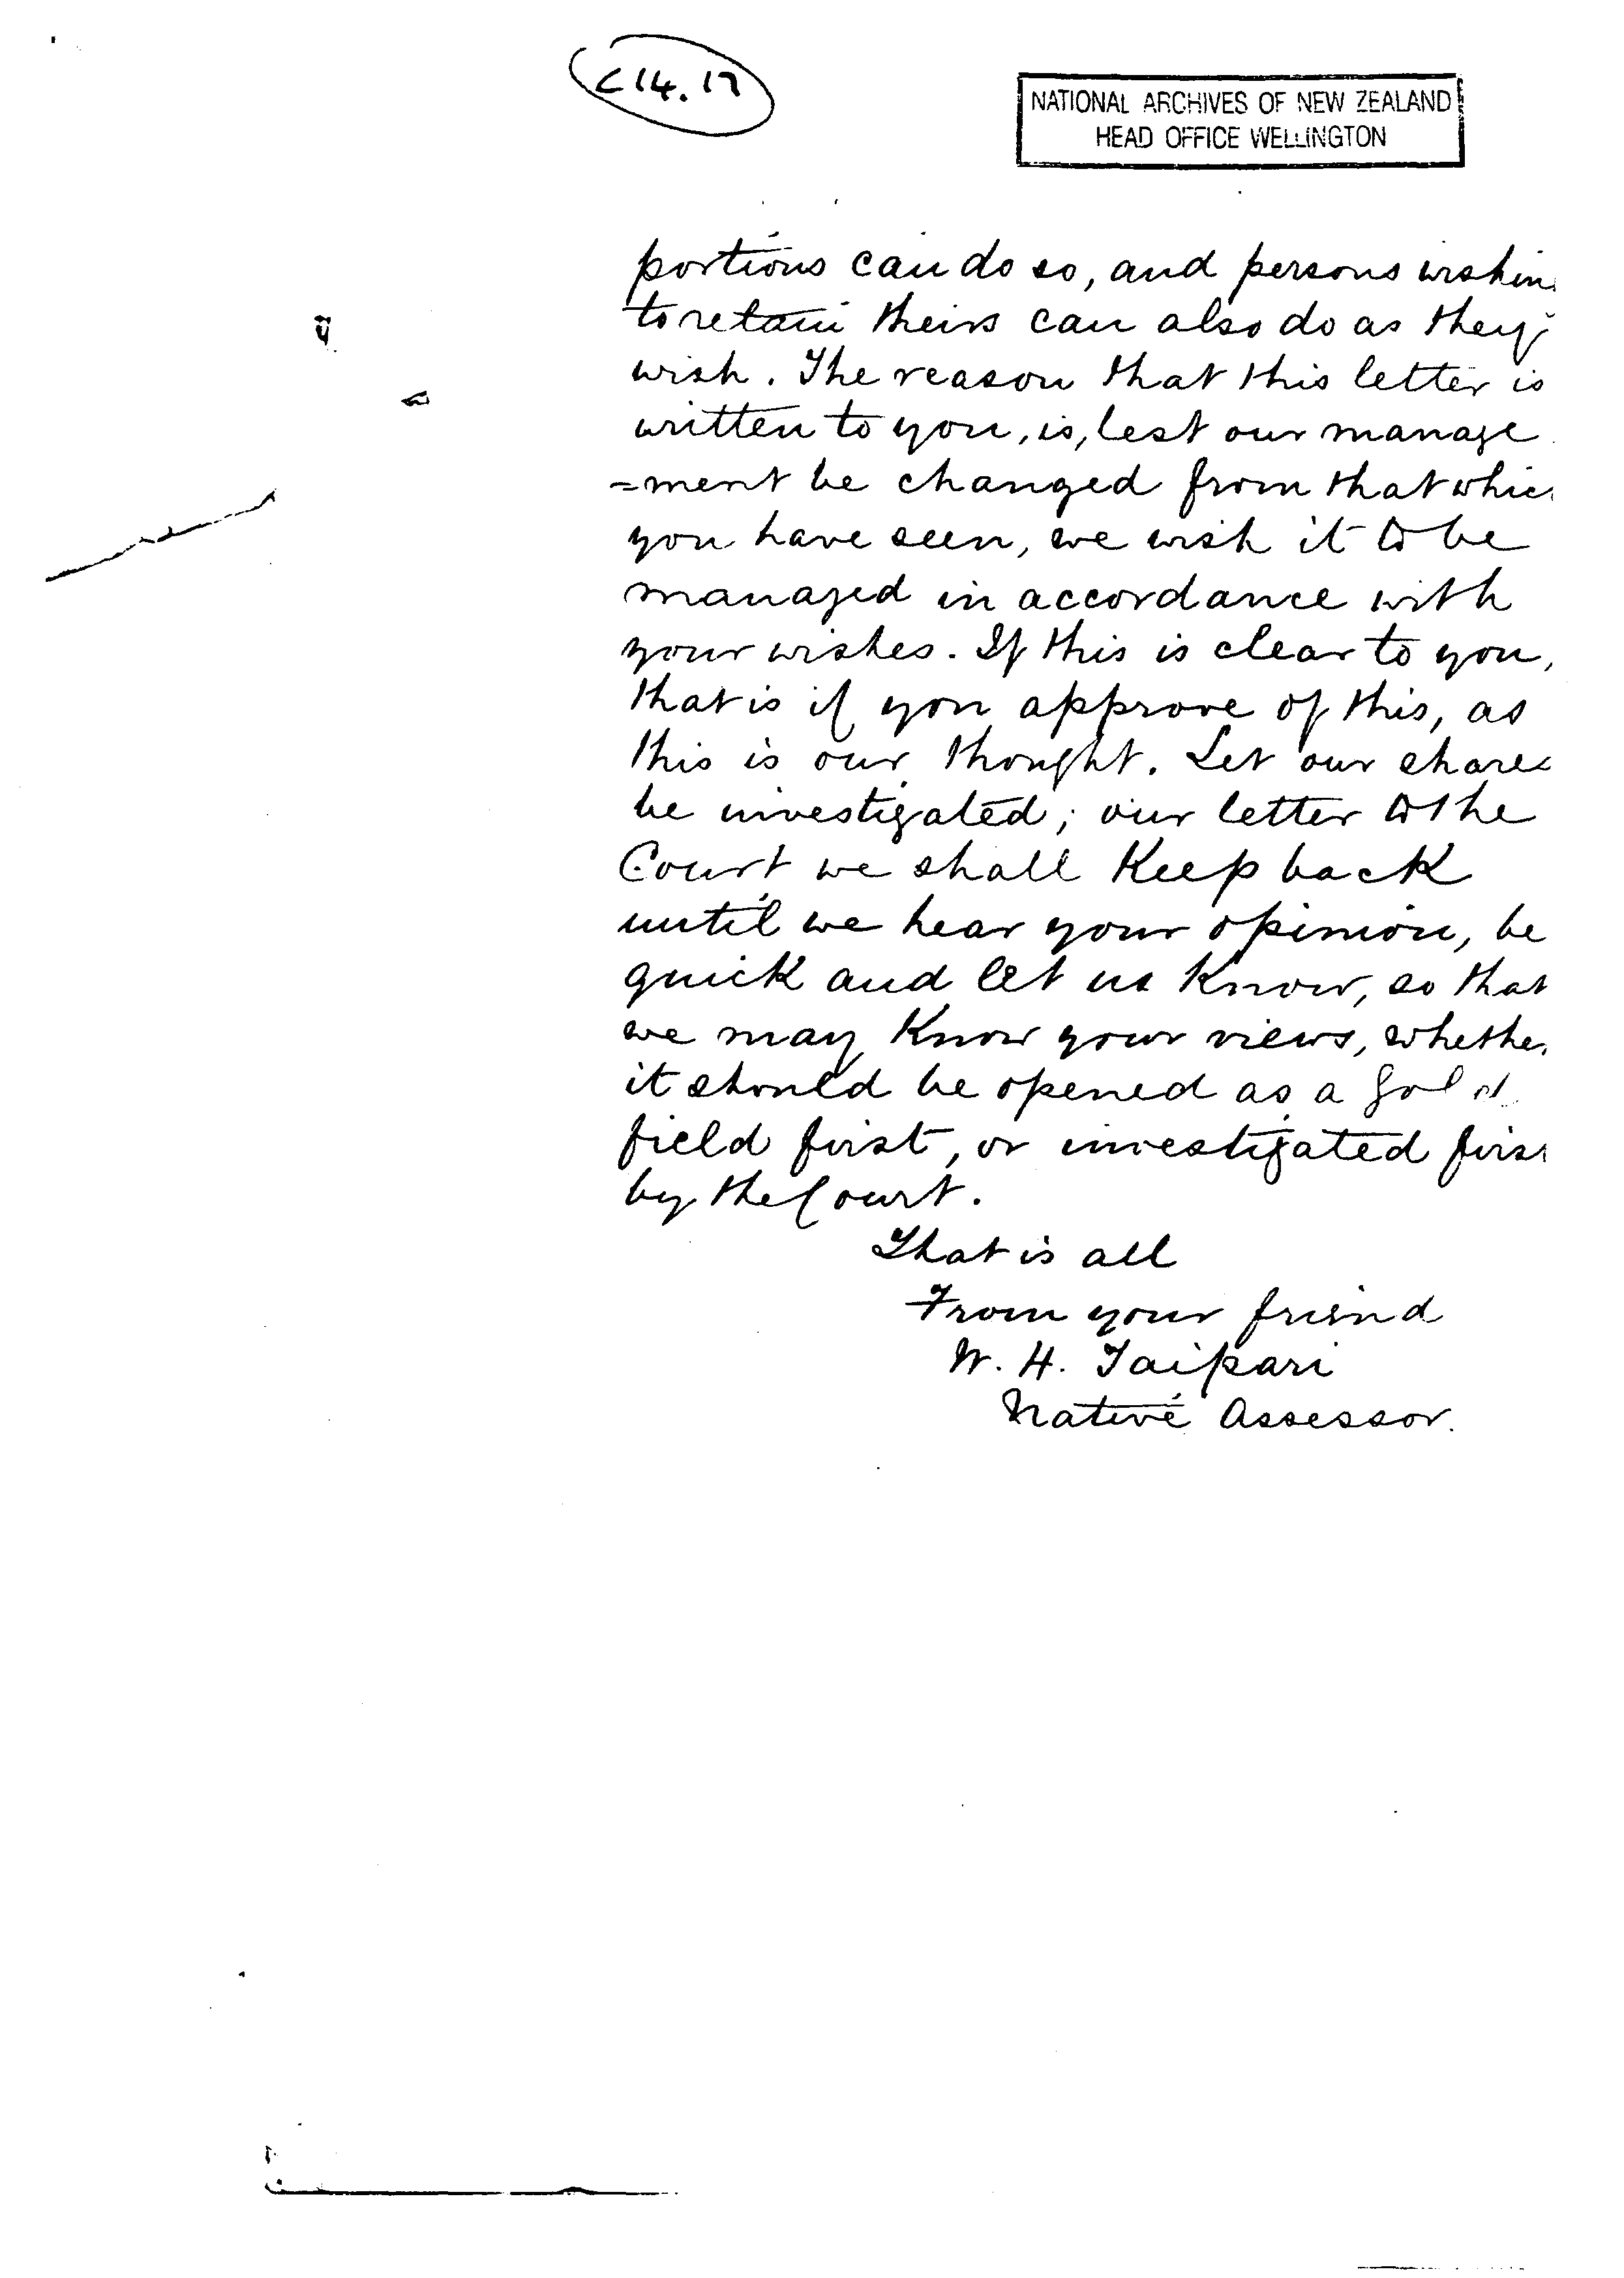 C14.17
NATIONAL ARCHIVES OF NEW ZEALAND
HEAD OFFICE WELLINGTON
portions can do so, and persons wishin
to retain theirs can also do as they
wish. The reason that this letter is
written to you, is, lest our manage
=ment be changed from that whic
you have seen, we wish it to be
managed in accordance with
your wishes. If this is clear to you,
that is if you approve of this, as
this is our thought. Let our shares
be investigated; our letter to the
Court we shall Keep back
until we hear your opinion, be
quick and let us Know, so that
we may Know your views, whethe
it should be opened as a gold
field first, or investigated firs
by the Court.
That is all
From your friend
W. H. Taipari
Native Assessor.